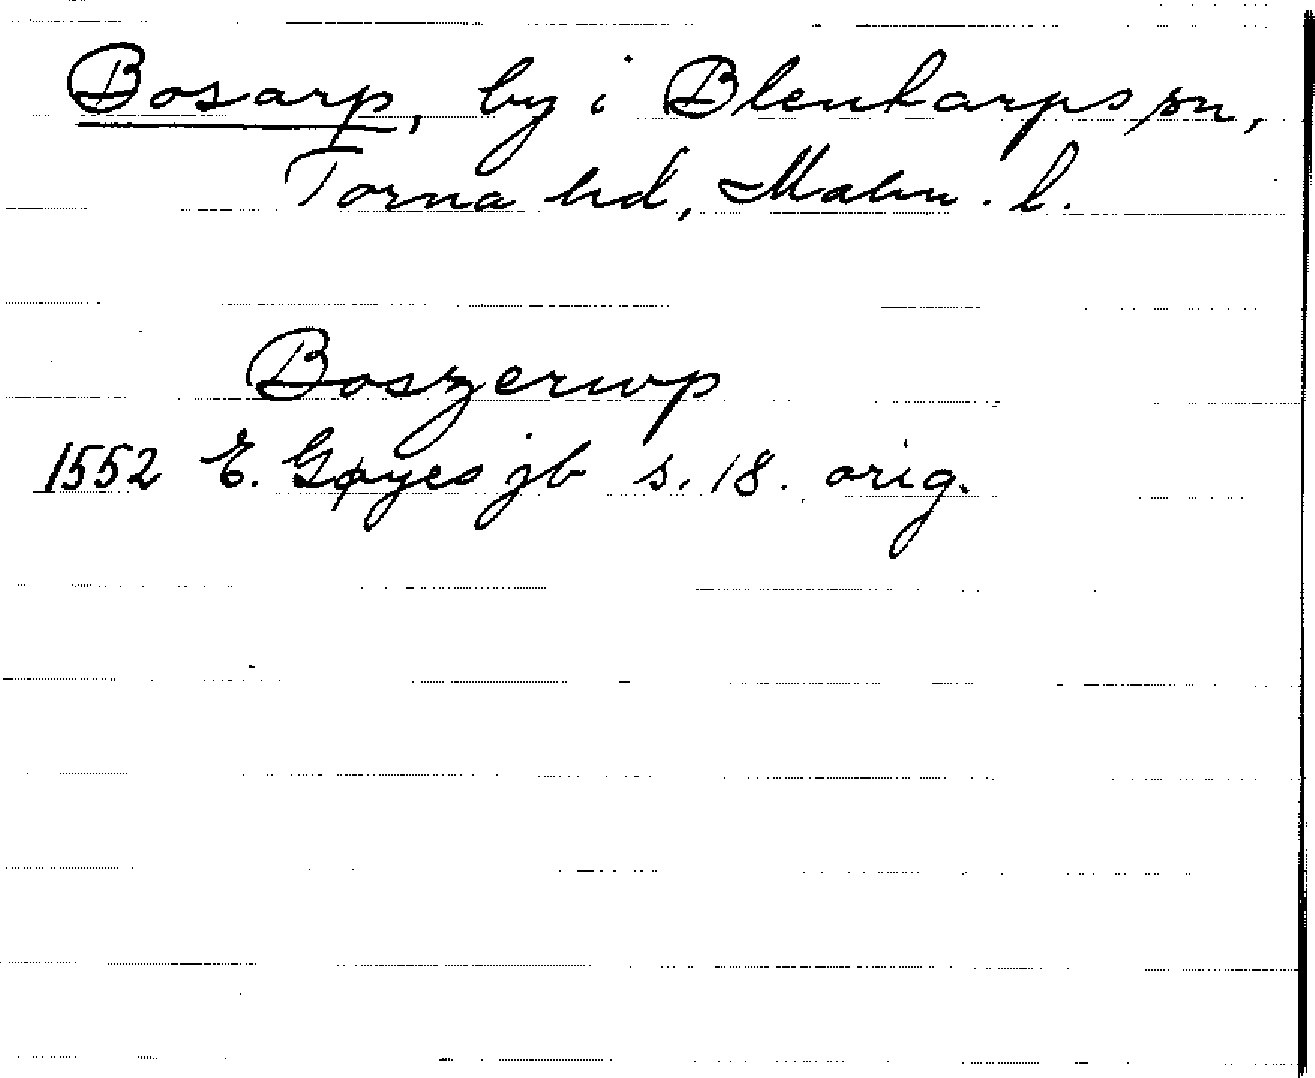 Bosarp, by i Blenkarps sn,
Torna hd, Malm. l.
Boszerwp
1552 E. Gøyes jb s. 18. orig.